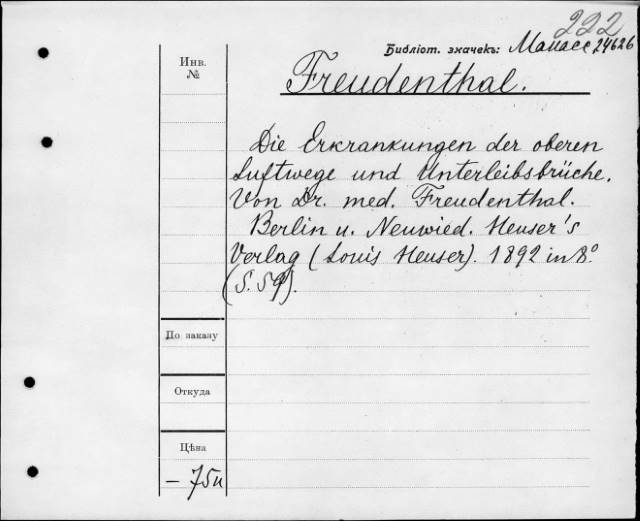 222
Библіот. значекъ: Манасс 24626
Инв.
№
Freudenthal.
Die Erkrankungen der oberen
Luftwege und Unterleibsbrüche.
Von Dr. med. Freudenthal.
Berlin u. Neuwied. Heuser's
Verlag (Louis Heuser). 1892 in 8.º
(S. 59).
По заказу
Откуда
Цѣна
— 75к